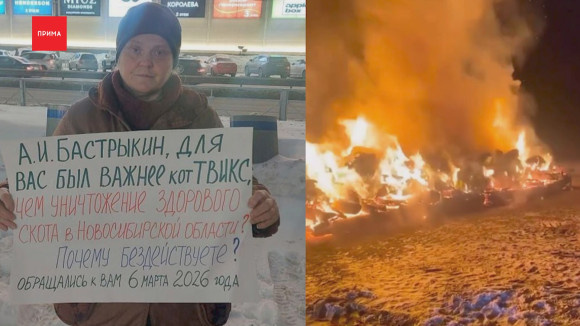 ПРИМА
КОРОЛЕВА
А.И. БАСТРЫКИН, ДЛЯ
ВАС БЫЛ ВАЖНЕЕ кот ТВИКС,
чем уничтожение здорового
скота в Новосибирской области?
Почему бездействуете?
ОБРАЩАЛИСЬ К ВАМ 6 МАРТА 2026 ГОДА